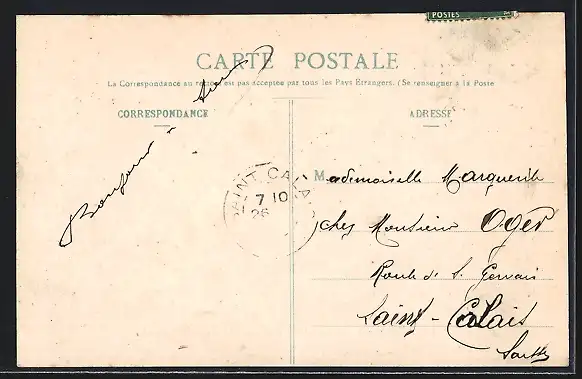 POSTES
CARTE POSTALE
La Correspondance au recto n'est pas acceptée par tous les Pays Etrangers. (Se renseigner à la Poste
CORRESPONDANCE
ADRESSE
Bonjour à
SAINT-CALA
7 10
26
Mademoiselle Marguerite
chez Monsieur Oger
Route de S. Gervais
Saint-Calais
Sarthe